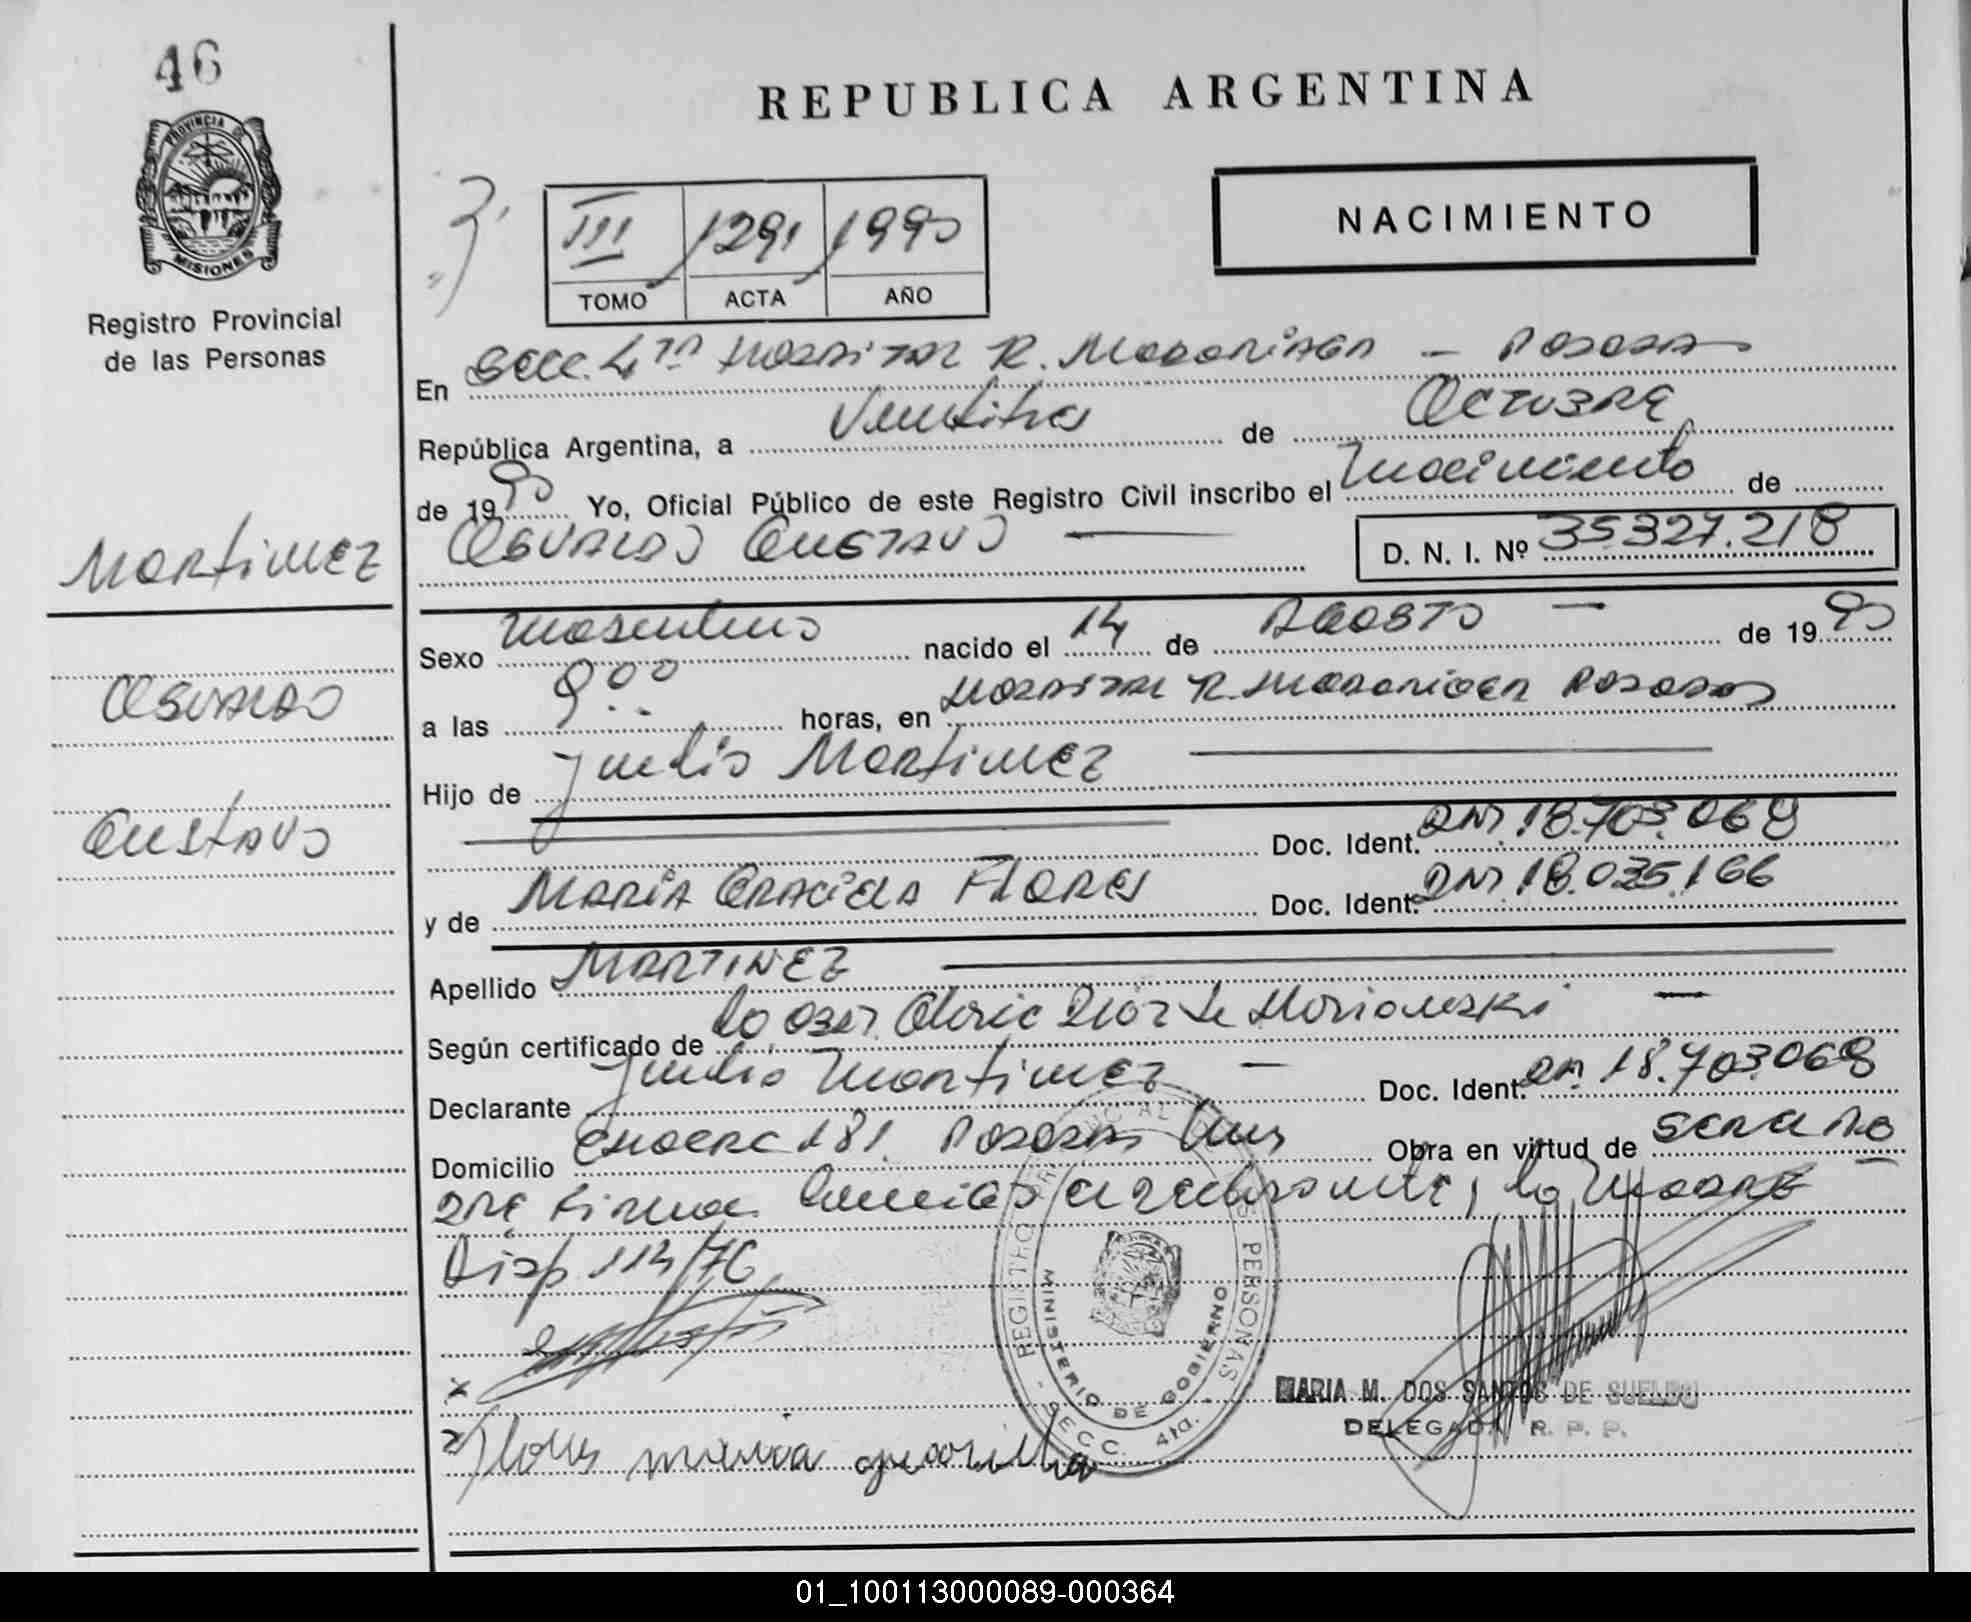 46
REPUBLICA ARGENTINA
PROVINCIA DE
MISIONES
Registro Provincial
de las Personas
III 1291 1990
TOMO ACTA AÑO
NACIMIENTO
En Secc. 4ta Hospital R. Madariaga - Posadas
República Argentina, a Veintitres de Octubre
de 1990 Yo, Oficial Público de este Registro Civil inscribo el nacimiento de
Osvaldo Gustavo D. N. I. Nº 35.327.218
Martinez
Osvaldo
Gustavo
Sexo masculino nacido el 14 de Agosto de 1990
a las 9:00 horas, en Hospital R. Madariaga Posadas
Hijo de Julio Martinez
Doc. Ident. DNI 18.703.068
y de Maria Graciela Flores Doc. Ident. DNI 18.035.166
Apellido MARTINEZ
Según certificado de la obst.
Declarante Julio Martinez Doc. Ident. DNI 18.703.068
Domicilio 181. Posadas Mnes Obra en virtud de ser el padre
firma el declarante, la Madre
Disp. 114/76
REGISTRO PROVINCIAL DE LAS PERSONAS
MINISTERIO DE GOBIERNO
SECC. 4ta.
MARIA M. DOS SANTOS DE SUELDO
DELEGADA R. P. P.
Flores maria
01_100113000089-000364